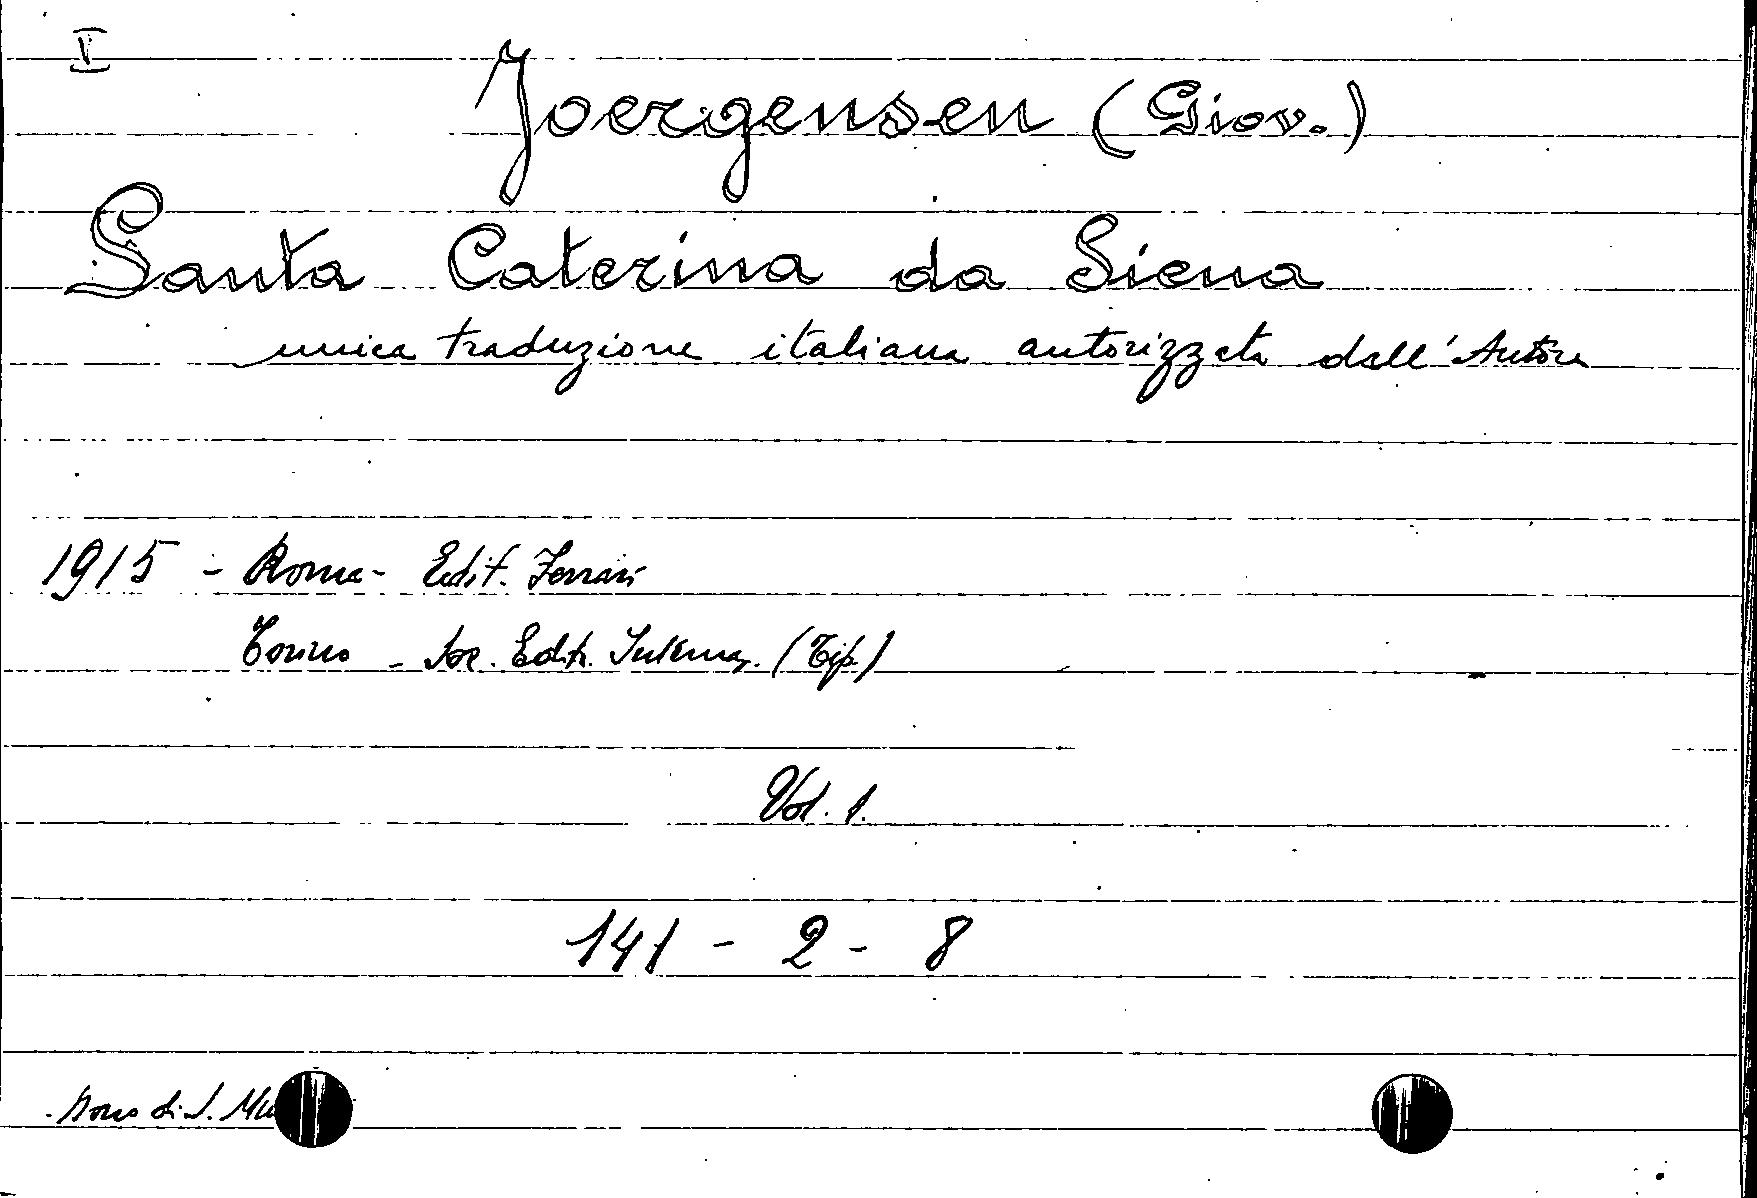 V
Joergensen (Giov.)
Santa Caterina da Siena
unica traduzione italiana autorizzata dall'Autore
1915 - Roma - Edit. Ferrari
Torino - Soc. Edit. Internaz. (Tip.)
Vol. 1.
141 - 2 - 8
Dono di S.